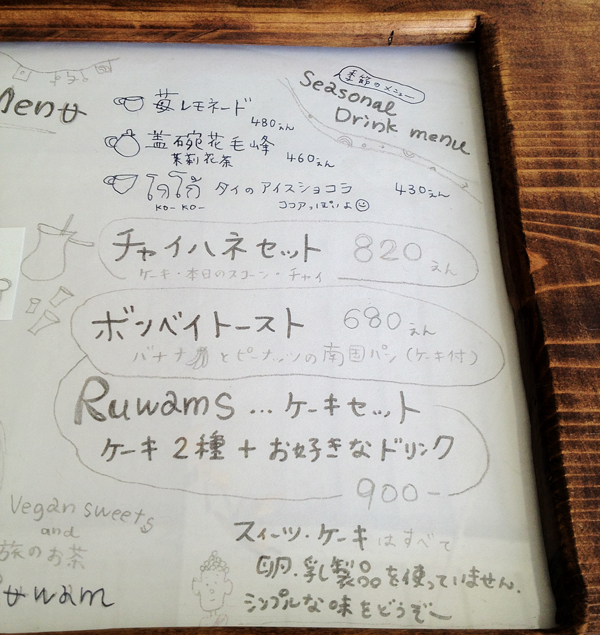 Menu
季節のメニュー
Seasonal
Drink menu
苺レモネード
480えん
蓋碗花毛峰
茉莉花茶 460えん
โกโก้ タイのアイスショコラ 430えん
KO- KO- ココアっぽいよ
チャイハネセット 820えん
ケーキ・本日のスコーン・チャイ
ボンベイトースト 680えん
バナナとピーナッツの南国パン(ケーキ付)
Ruwams...ケーキセット
ケーキ2種+お好きなドリンク
900-
Vegan sweets
and
旅のお茶
Ruwam
スイーツ・ケーキはすべて
卵・乳製品を使っていません.
シンプルな味をどうぞ〜